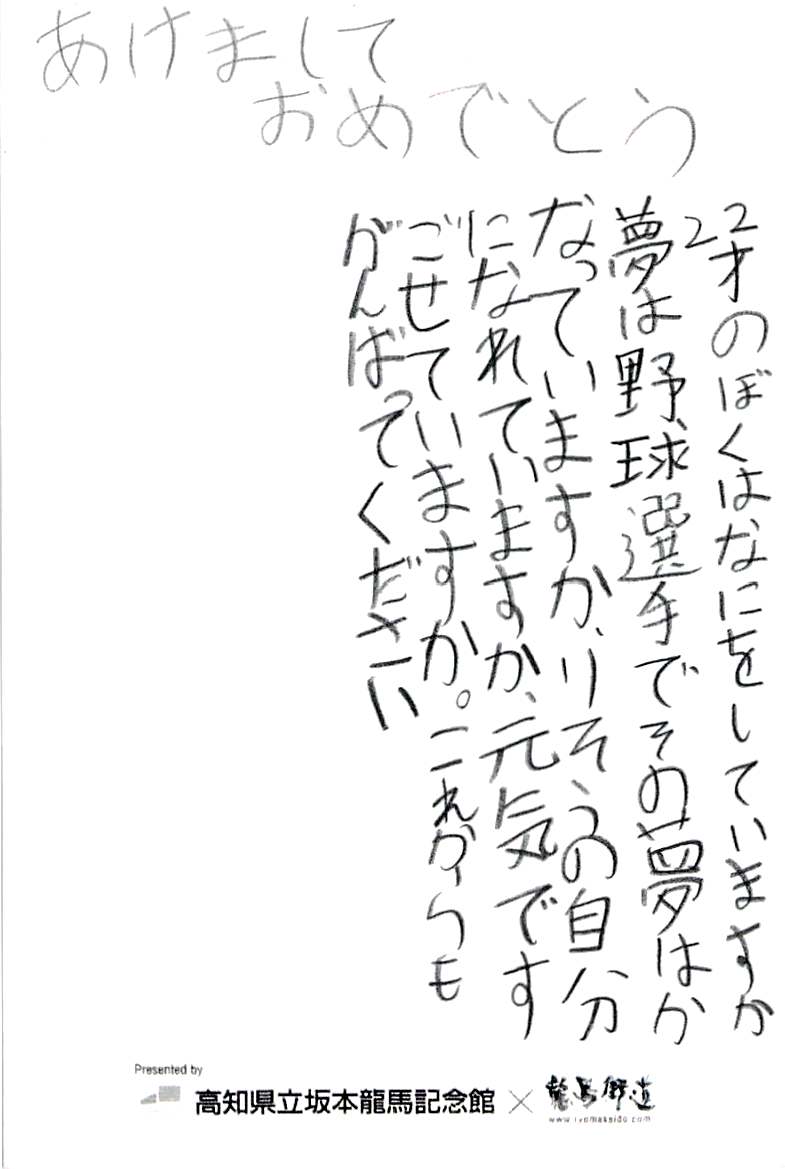 あけまして
おめでとう
22才のぼくはなにをしていますか
夢は野球選手でその夢はか
なっていますか、りそうの自分
になれていますか、元気です
ごせていますか。これからも
がんばってください
Presented by
高知県立坂本龍馬記念館 × 龍馬街道
www.ryomakaido.com